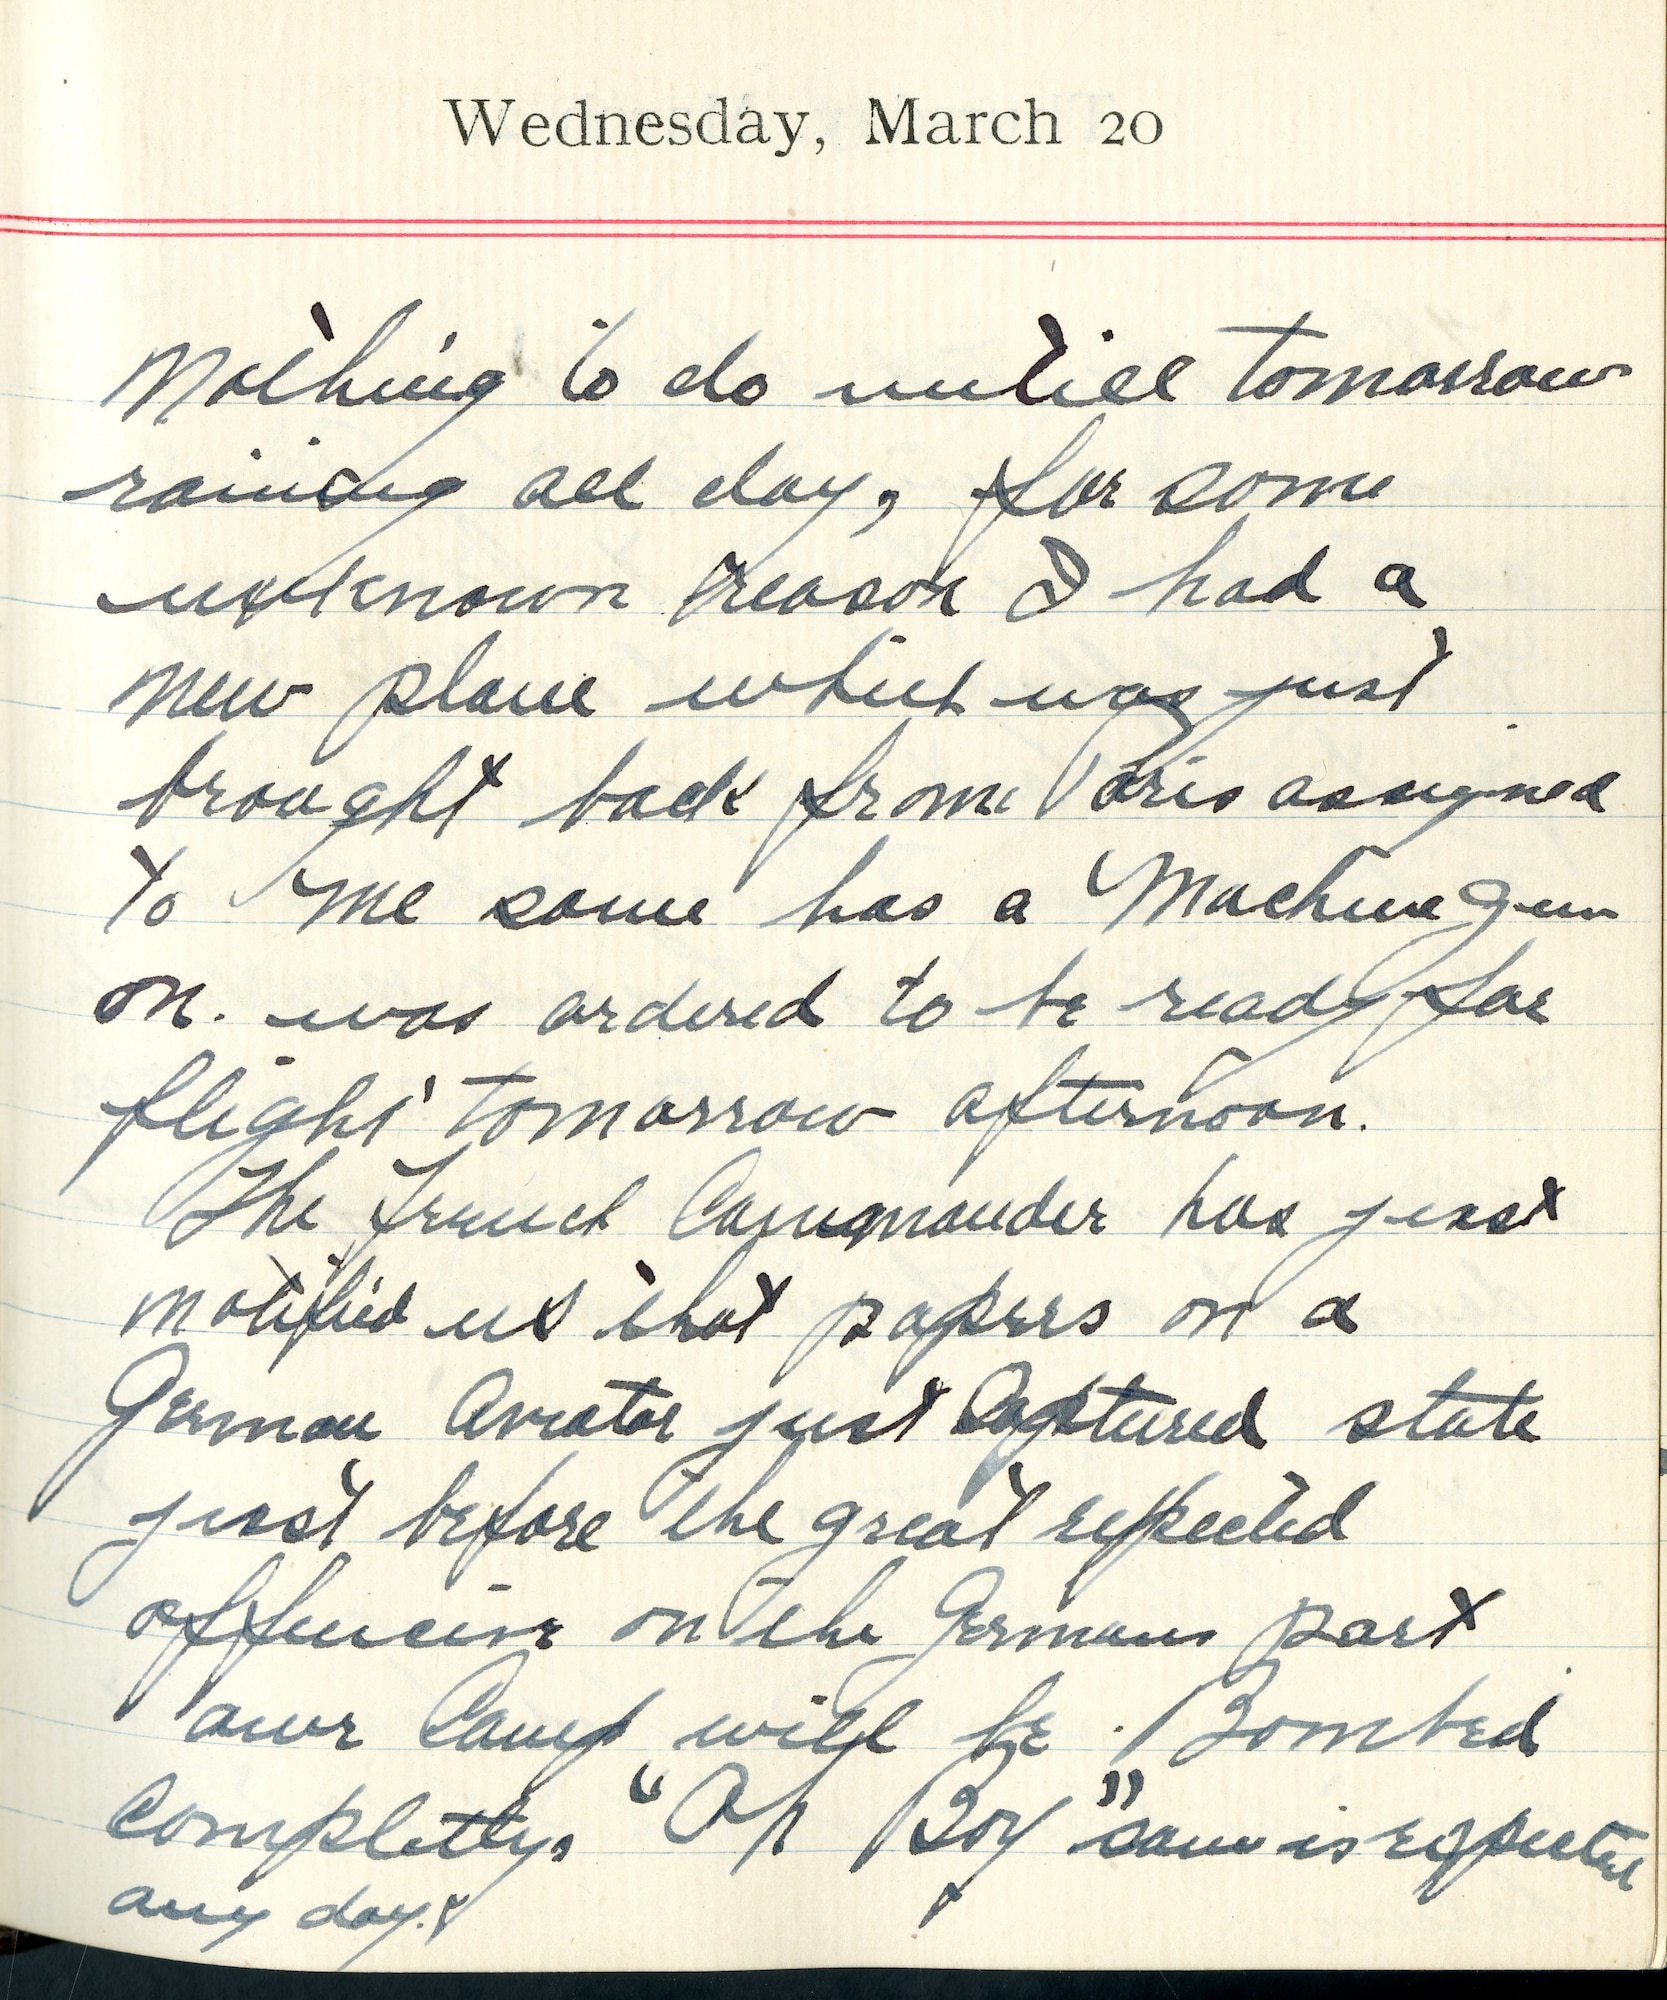 Wednesday, March 20
Nothing to do untill tomorrow
raining all day, for some
unknown reason I had a
new plane which was just
brought back from Paris assigned
to me same has a Machine Gun
on. was ordered to be ready for
flight tomorrow afternoon.
The French Commander has just
notified us that papers on a
German Aviator just Captured state
just before the great expected
offencive on the Germans part
our Camp will be Bombed
completty. "Oh Boy" same is expected
any day.